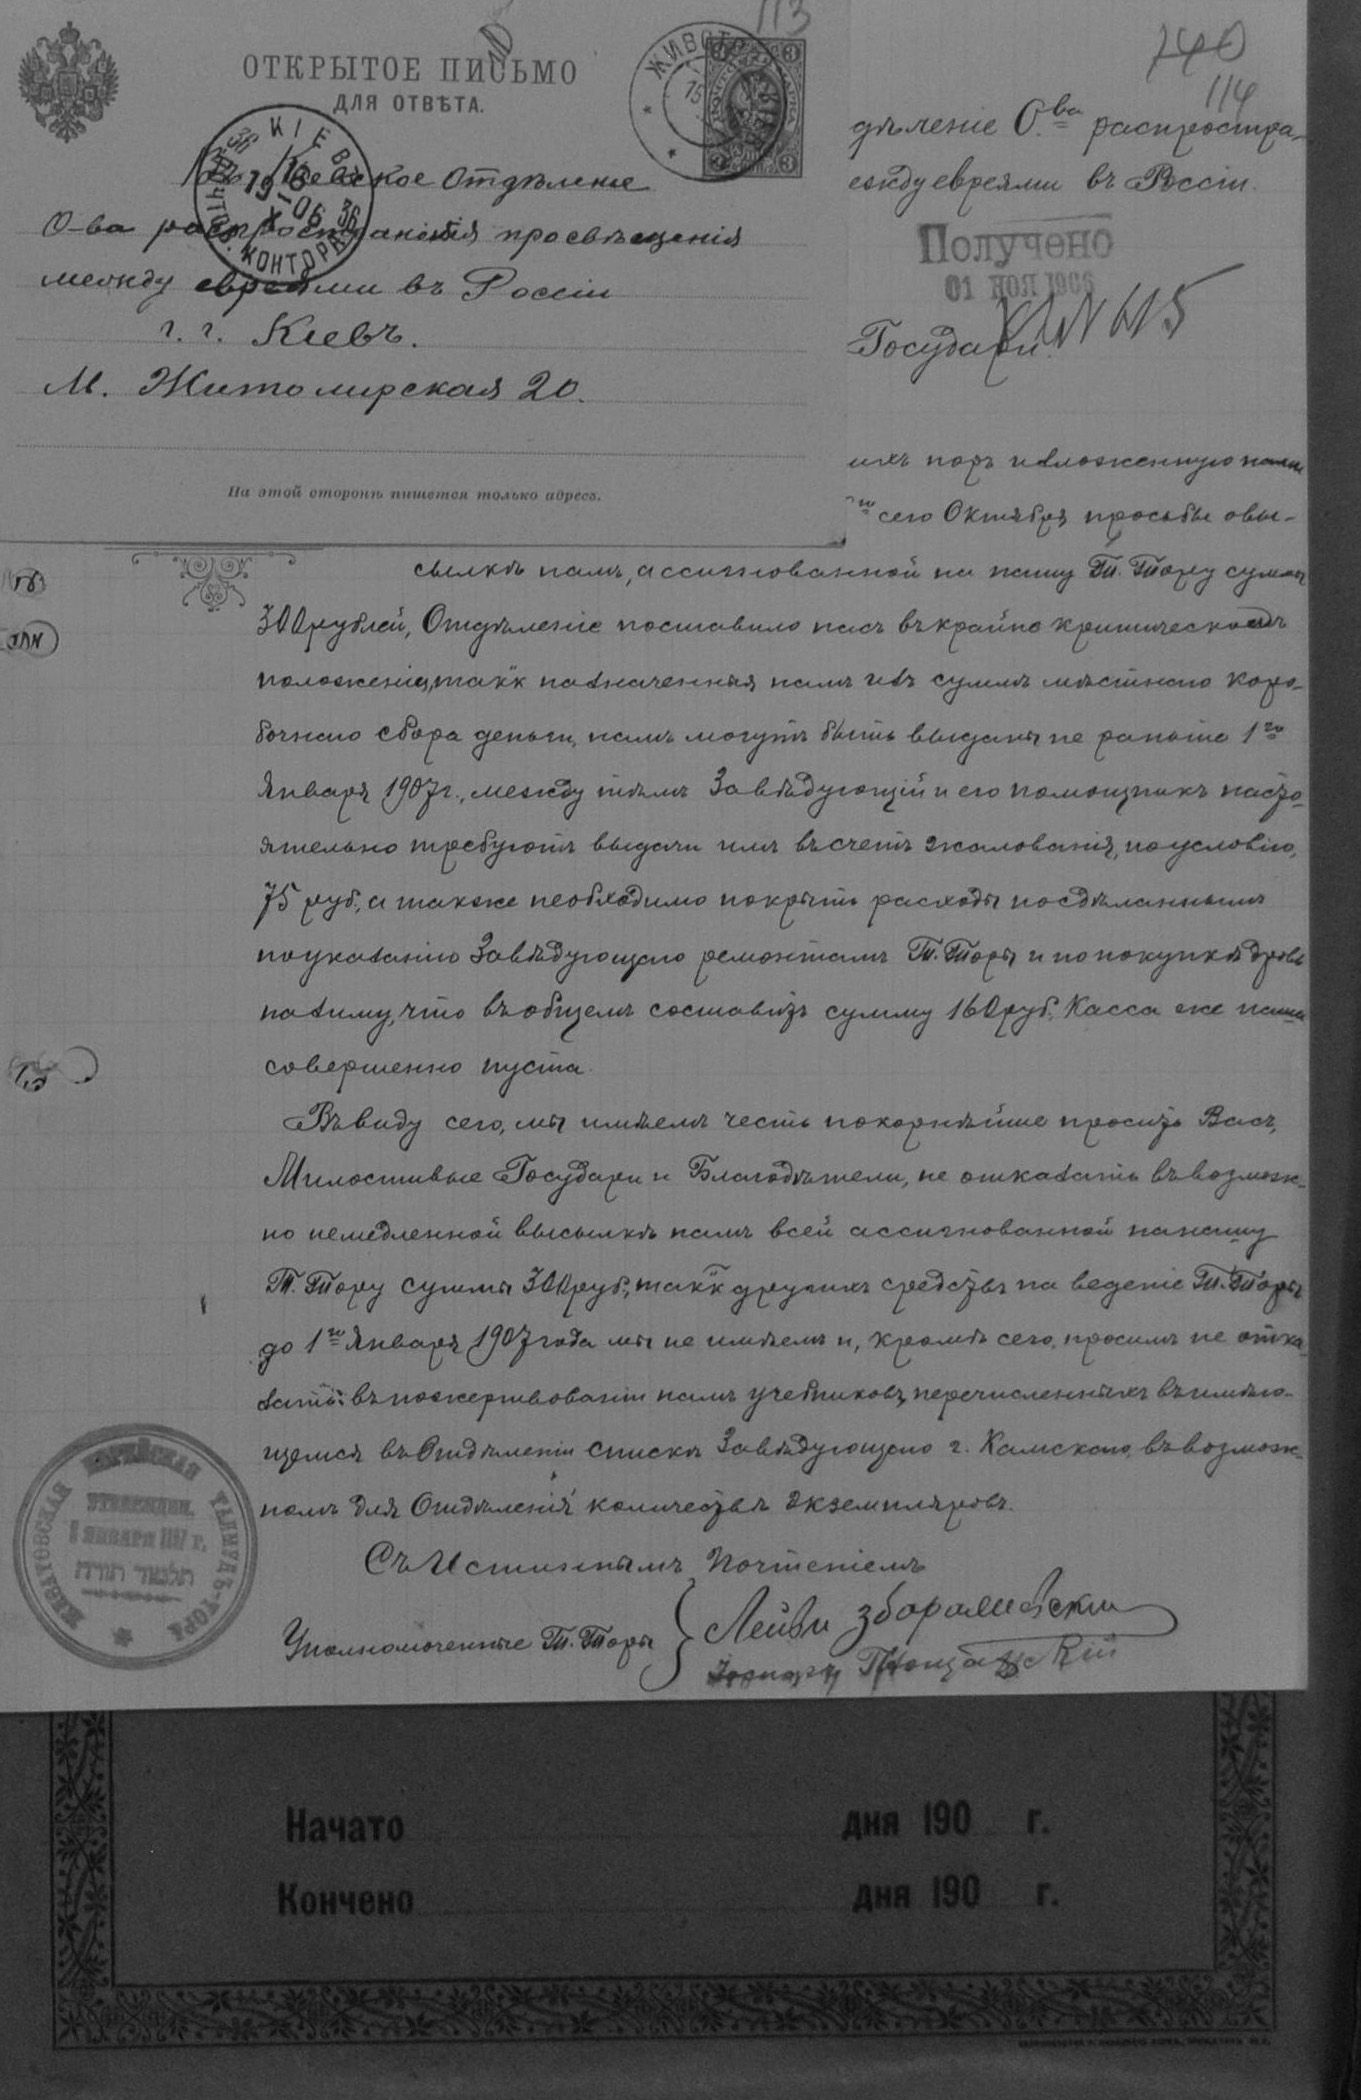 113
ОТКРЫТОЕ ПИСЬМО
ДЛЯ ОТВѢТА.
КІЕВЪ
19 X 06
КОНТОРА
Кіевское Отдѣленіе
О-ва распространенія просвѣщенія
между евреями въ Россіи
г. г. Кіевъ.
М. Житомирская 20.
На этой сторонѣ пишется только адресъ.
740
114
дѣленіе О.ва распростра-
ежду евреями въ Россіи.
Получено
01 НОЯ 1906
Государи.
ихъ поръ изложенную нами
го сего Октября просьбы о вы-
сылкѣ намъ, ассигнованной на нашу Т. Тору суммы
300 рублей, Отдѣленіе поставило насъ въ крайно критическомъ
положенія, такъ к назначенныя намъ изъ суммъ мѣстнаго коро-
бочнаго сбора деньги, намъ могутъ быть выданы не раньше 1го
Января 1907 г., между тѣмъ Завѣдующій и его помощникъ насто-
ятельно требуютъ выдачи имъ въ счетъ жалованія, по условію,
75 руб., а также необходимо покрыть расходы по сдѣланнымъ
по указанію Завѣдующаго ремонтамъ Т. Торы и по покупкѣ дровъ
на зиму, что въ общемъ составитъ сумму 160 руб. Касса же наша
совершенно пуста.
Въ виду сего, мы имѣемъ честь покорнѣйше просить Васъ,
Милостивые Государи и Благодѣтели, не отказать въ возмож-
но немедленной высылкѣ намъ всей ассигнованной на нашу
Т. Тору суммы 300 руб., такъ к другихъ средствъ на веденіе Т. Торы
до 1го Января 1907 года мы не имѣемъ и, кромѣ сего, просимъ не отка-
зать въ пожертвованіи намъ учебниковъ, перечисленныхъ въ имѣю-
щемся въ Отдѣленіи спискѣ Завѣдующаго г. Камскаго, въ возмож-
номъ для Отдѣленія количествѣ экземпляровъ.
Съ Истиннымъ Почтеніемъ
Уполномоченные Т. Торы
Лейви Збарашевскій
ЕВРЕЙСКАЯ ТАЛМУДЪ-ТОРА
תלמוד תורה
Начато дня 190 г.
Кончено дня 190 г.